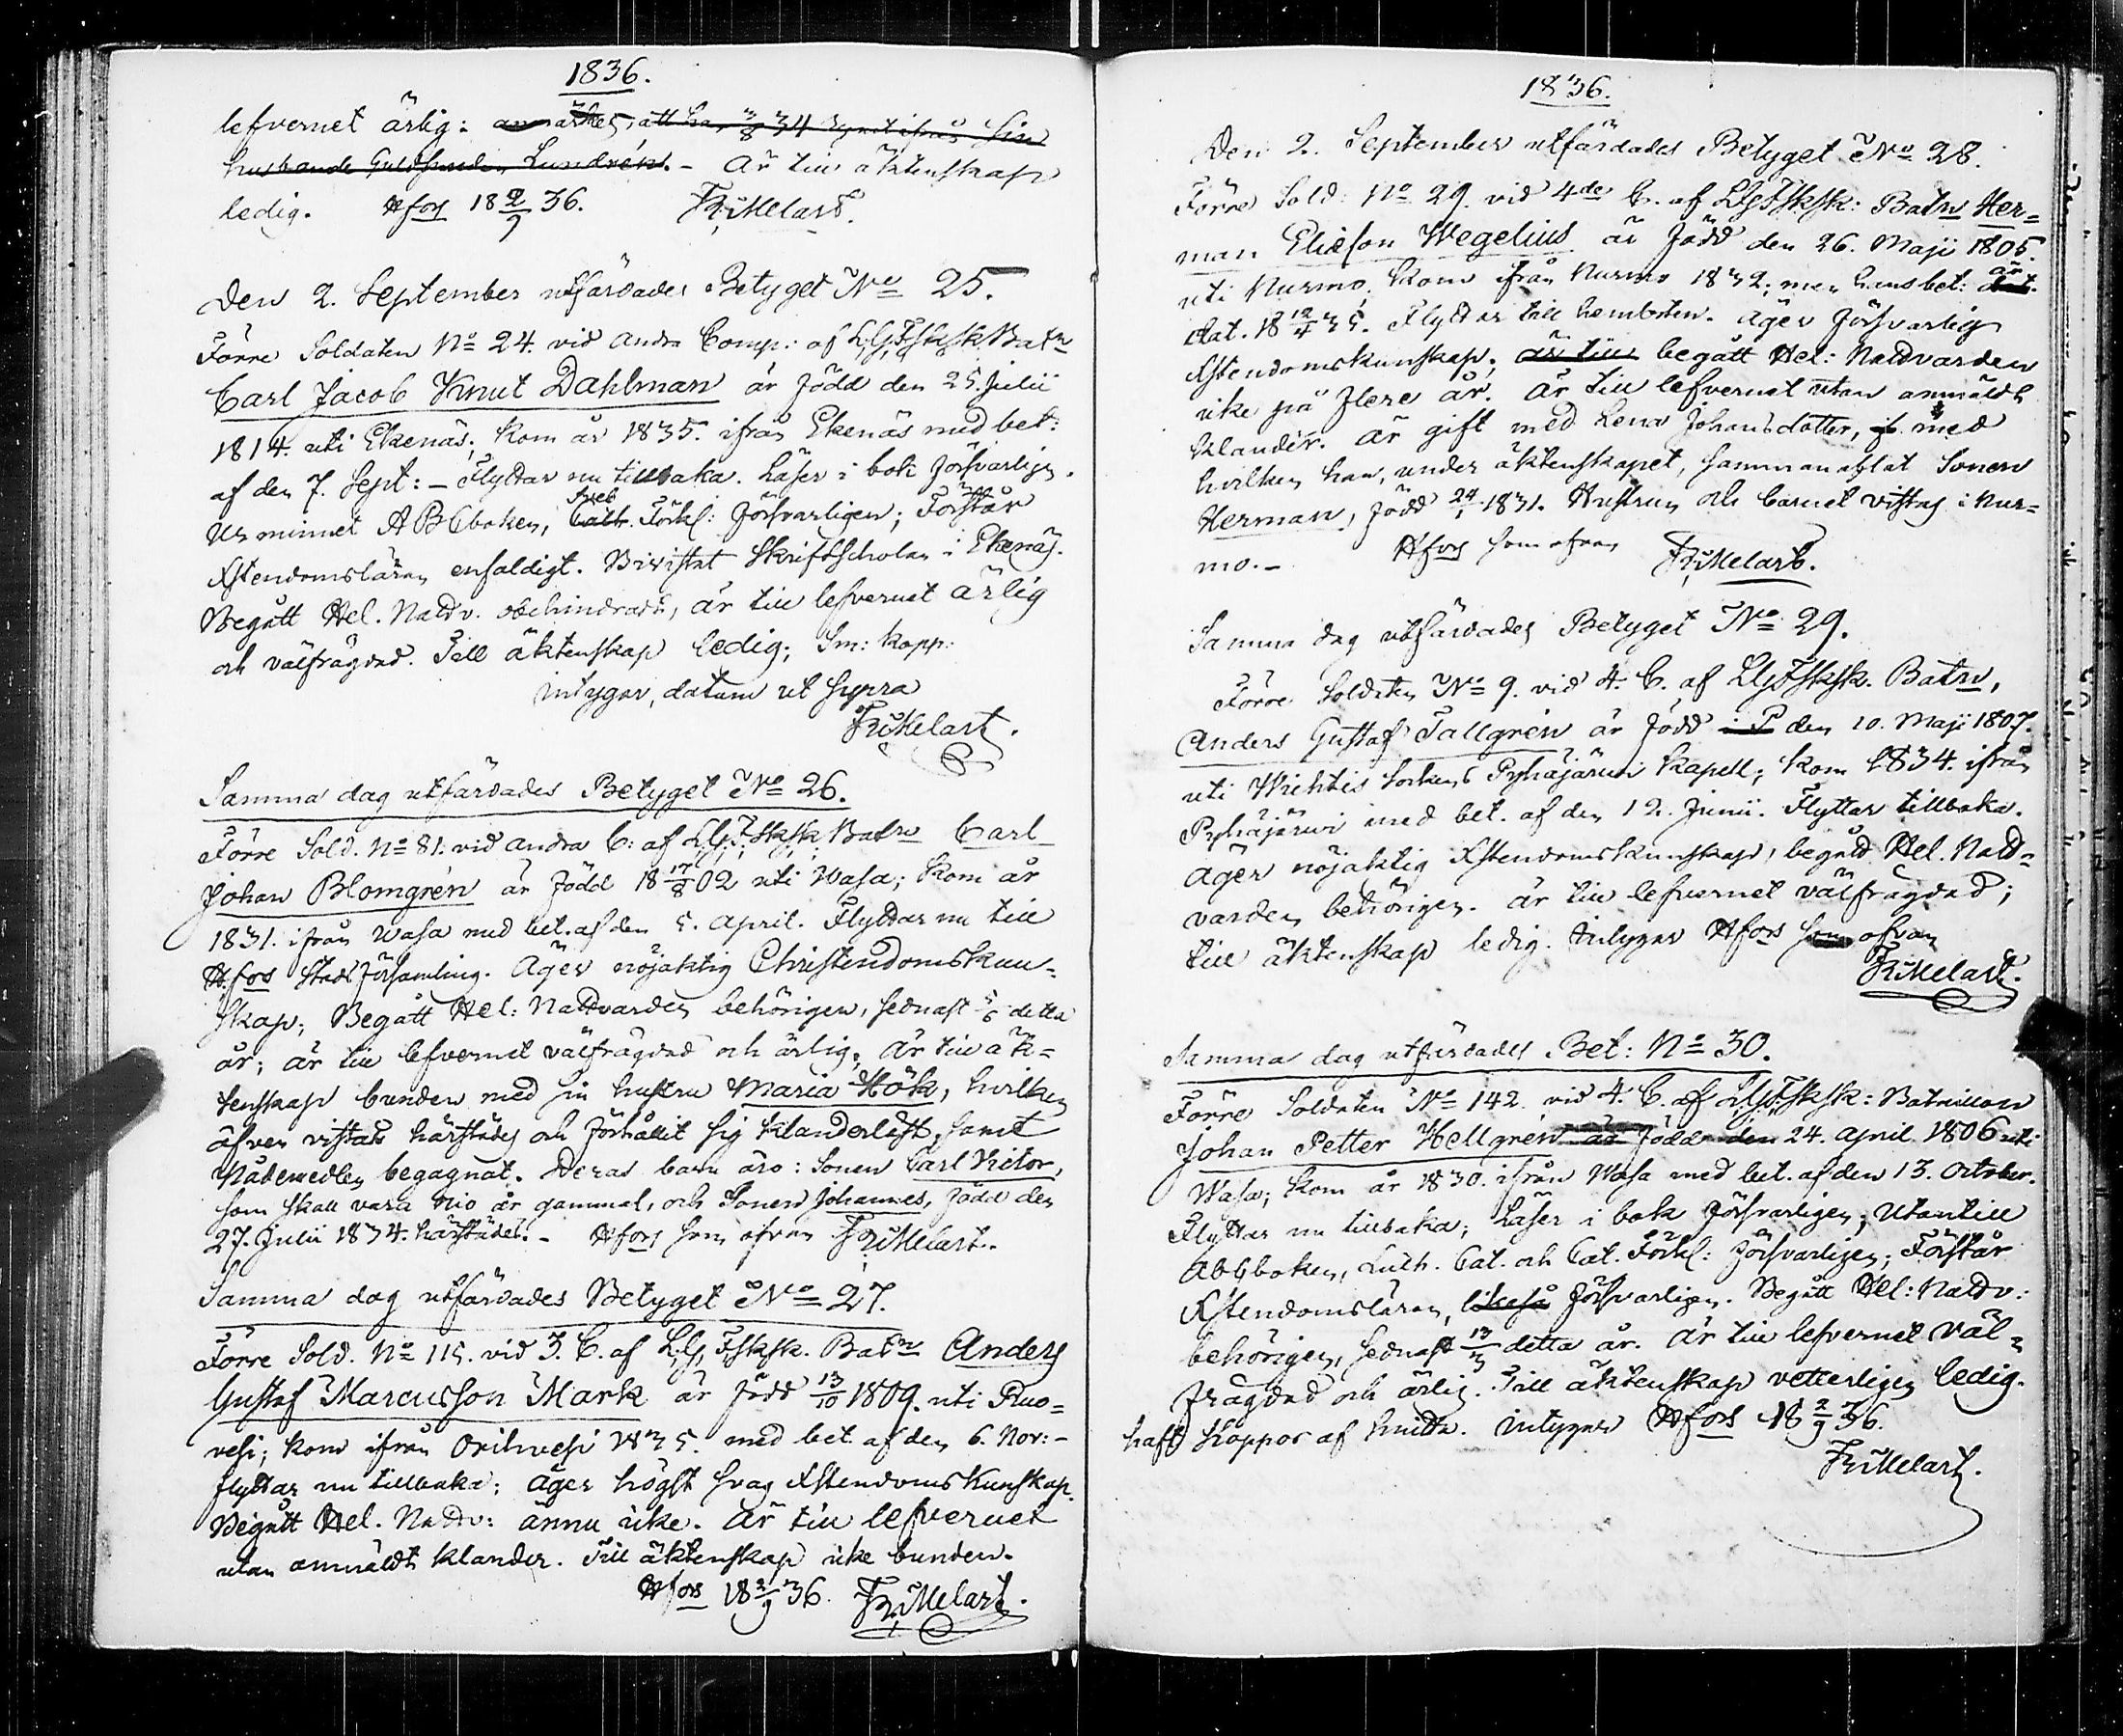 1836.
lefvernet ärlig: anmärkes, att han 3/8 34 rymt ifrån sin
husbonde Guldsmeden Lundrén. - Är till äktenskap
ledig. Hfors 18 2/9 36. FRiMelart.
Den 2. September utfärdades Betyget No 25.
Förre Soldaten No 24. vid andra Comp: af L.G. FSkSk Batn
Carl Jacob Knut Dahlman är född den 25. Julii
1814. uti Ekenäs; kom år 1835. ifrån Ekenäs med bet:
af den 7. Sept: - Flyttar nu tillbaka. Läser i bok försvarligen.
Ur minnet ABCboken, Cath. Förkl: försvarligen; Förstår
Xstendomsläran enfaldigt. Bivistat Skriftscholan i Ekenäs.
Begått Hel. Nattv. obehindradt, är till lefvernet ärlig
och välfrägdad. Till äktenskap ledig; Sm: kopp:
intygar, datum ut supra
FRiMelart.
Samma dag utfärdades Betyget No 26.
Förre Sold. No 81. vid andra C: af L.G. F.SkSk Batn Carl
Johan Blomgrén är född 18 17/8 02 uti Wasa; kom år
1831. ifrån Wasa med bet. af den 5. April. Flyttar nu till
Hfors Stadsförsamling. Äger nöjaktig Christendomskun-
skap; Begått Hel: Nattvarden behörigen, sednast 5/6 detta
år; är till lefvernet välfrägdad och ärlig; är till äk-
tenskap bunden med sin hustru Maria Hök, hvilken
äfven vistats härstädes och förhållit sig klanderlöst, samt
Nådemedlen begagnat. Deras barn äro: Sonen Carl Victor,
som skall vara nio år gammal, och Sonen Johannes, född den
27. Julii 1834. härstädes. - Hfors som ofvan FRiMelart.
Samma dag utfärdades Betyget No 27.
Förre Sold. No 115. vid 3. C. af L.G. FSkSk. Batn Anders
Gustaf Marcusson Mark är född 13/10 1809. uti Ruo-
vesi; kom ifrån Orihvesi 1835. med bet. af den 6. Nov: -
flyttar nu tillbaka; äger högst svag Xstendoms kunskap.
Begått Hel. Nattv: ännu icke. Är till lefvernet
utan anmäldt klander. Till äktenskap icke bunden.
Hfors 18 2/9 36. FRiMelart.
1836.
Den 2. September utfärdades Betyget No 28.
Förre Sold: No 29. vid 4de C. af LGFSkSk: Batn Her=
man Elieson Wegelius är född den 26. Maji 1805.
uti Nurmo. Kom ifrån Nurmo 1832; men hans bet: är
dat. 18 12/4 35. Flyttar till hemorten. Äger försvarlig
Xstendomskunskap; är till begått Hel: Nattvarden
icke på flere år. Är till lefvernet utan anmäldt
klander. Är gift med Lena Johansdotter, med
hvilken han, under äktenskapet, sammanaflat Sonen
Herman, född 24/1 1831. Hustrun och barnet vistas i Nur=
mo. - Hfors som ofvan FRiMelart.
Samma dag utfärdades Betyget No 29.
Förre Soldaten No 9. vid 4. C. af LGFSkSk. Batn,
Anders Gustaf Tallgrén är född i P den 10. Maji 1807.
uti Wichtis Sockens Pyhäjärwi Kapell; kom 1834. ifrån
Pyhäjärwi med bet. af den 12. Junii. Flyttar tillbaka.
Äger nöjaktig Xstendomskunskap, begått Hel. Natt=
varden behörigen. är till lefvernet välfrägdad;
till äktenskap ledig. Intygar Hfors som ofvan
FRiMelart.
Samma dag utfärdades Bet: No 30.
Förre Soldaten No 142. vid 4. C. af LGFSkSk: Bataillon
Johan Petter Hellgren är född den 24. April 1806 uti
Wasa; kom år 1830. ifrån Wasa med bet. af den 13. October.
Flyttar nu tillbaka; Läser i bok försvarligen; Utantill
ABCboken, Luth. Cat. och Cat. Förkl: försvarligen; Förstår
Xstendomsläran, likaså försvarligen. Begått Hel: Nattv:
behörigen, sednast 13/3 detta år. Är till lefvernet väl=
frägdad och ärlig. Till äktenskap vetterligen ledig.
haft koppor af smitta. Intygar Hfors 18 2/9 36.
FRiMelart.